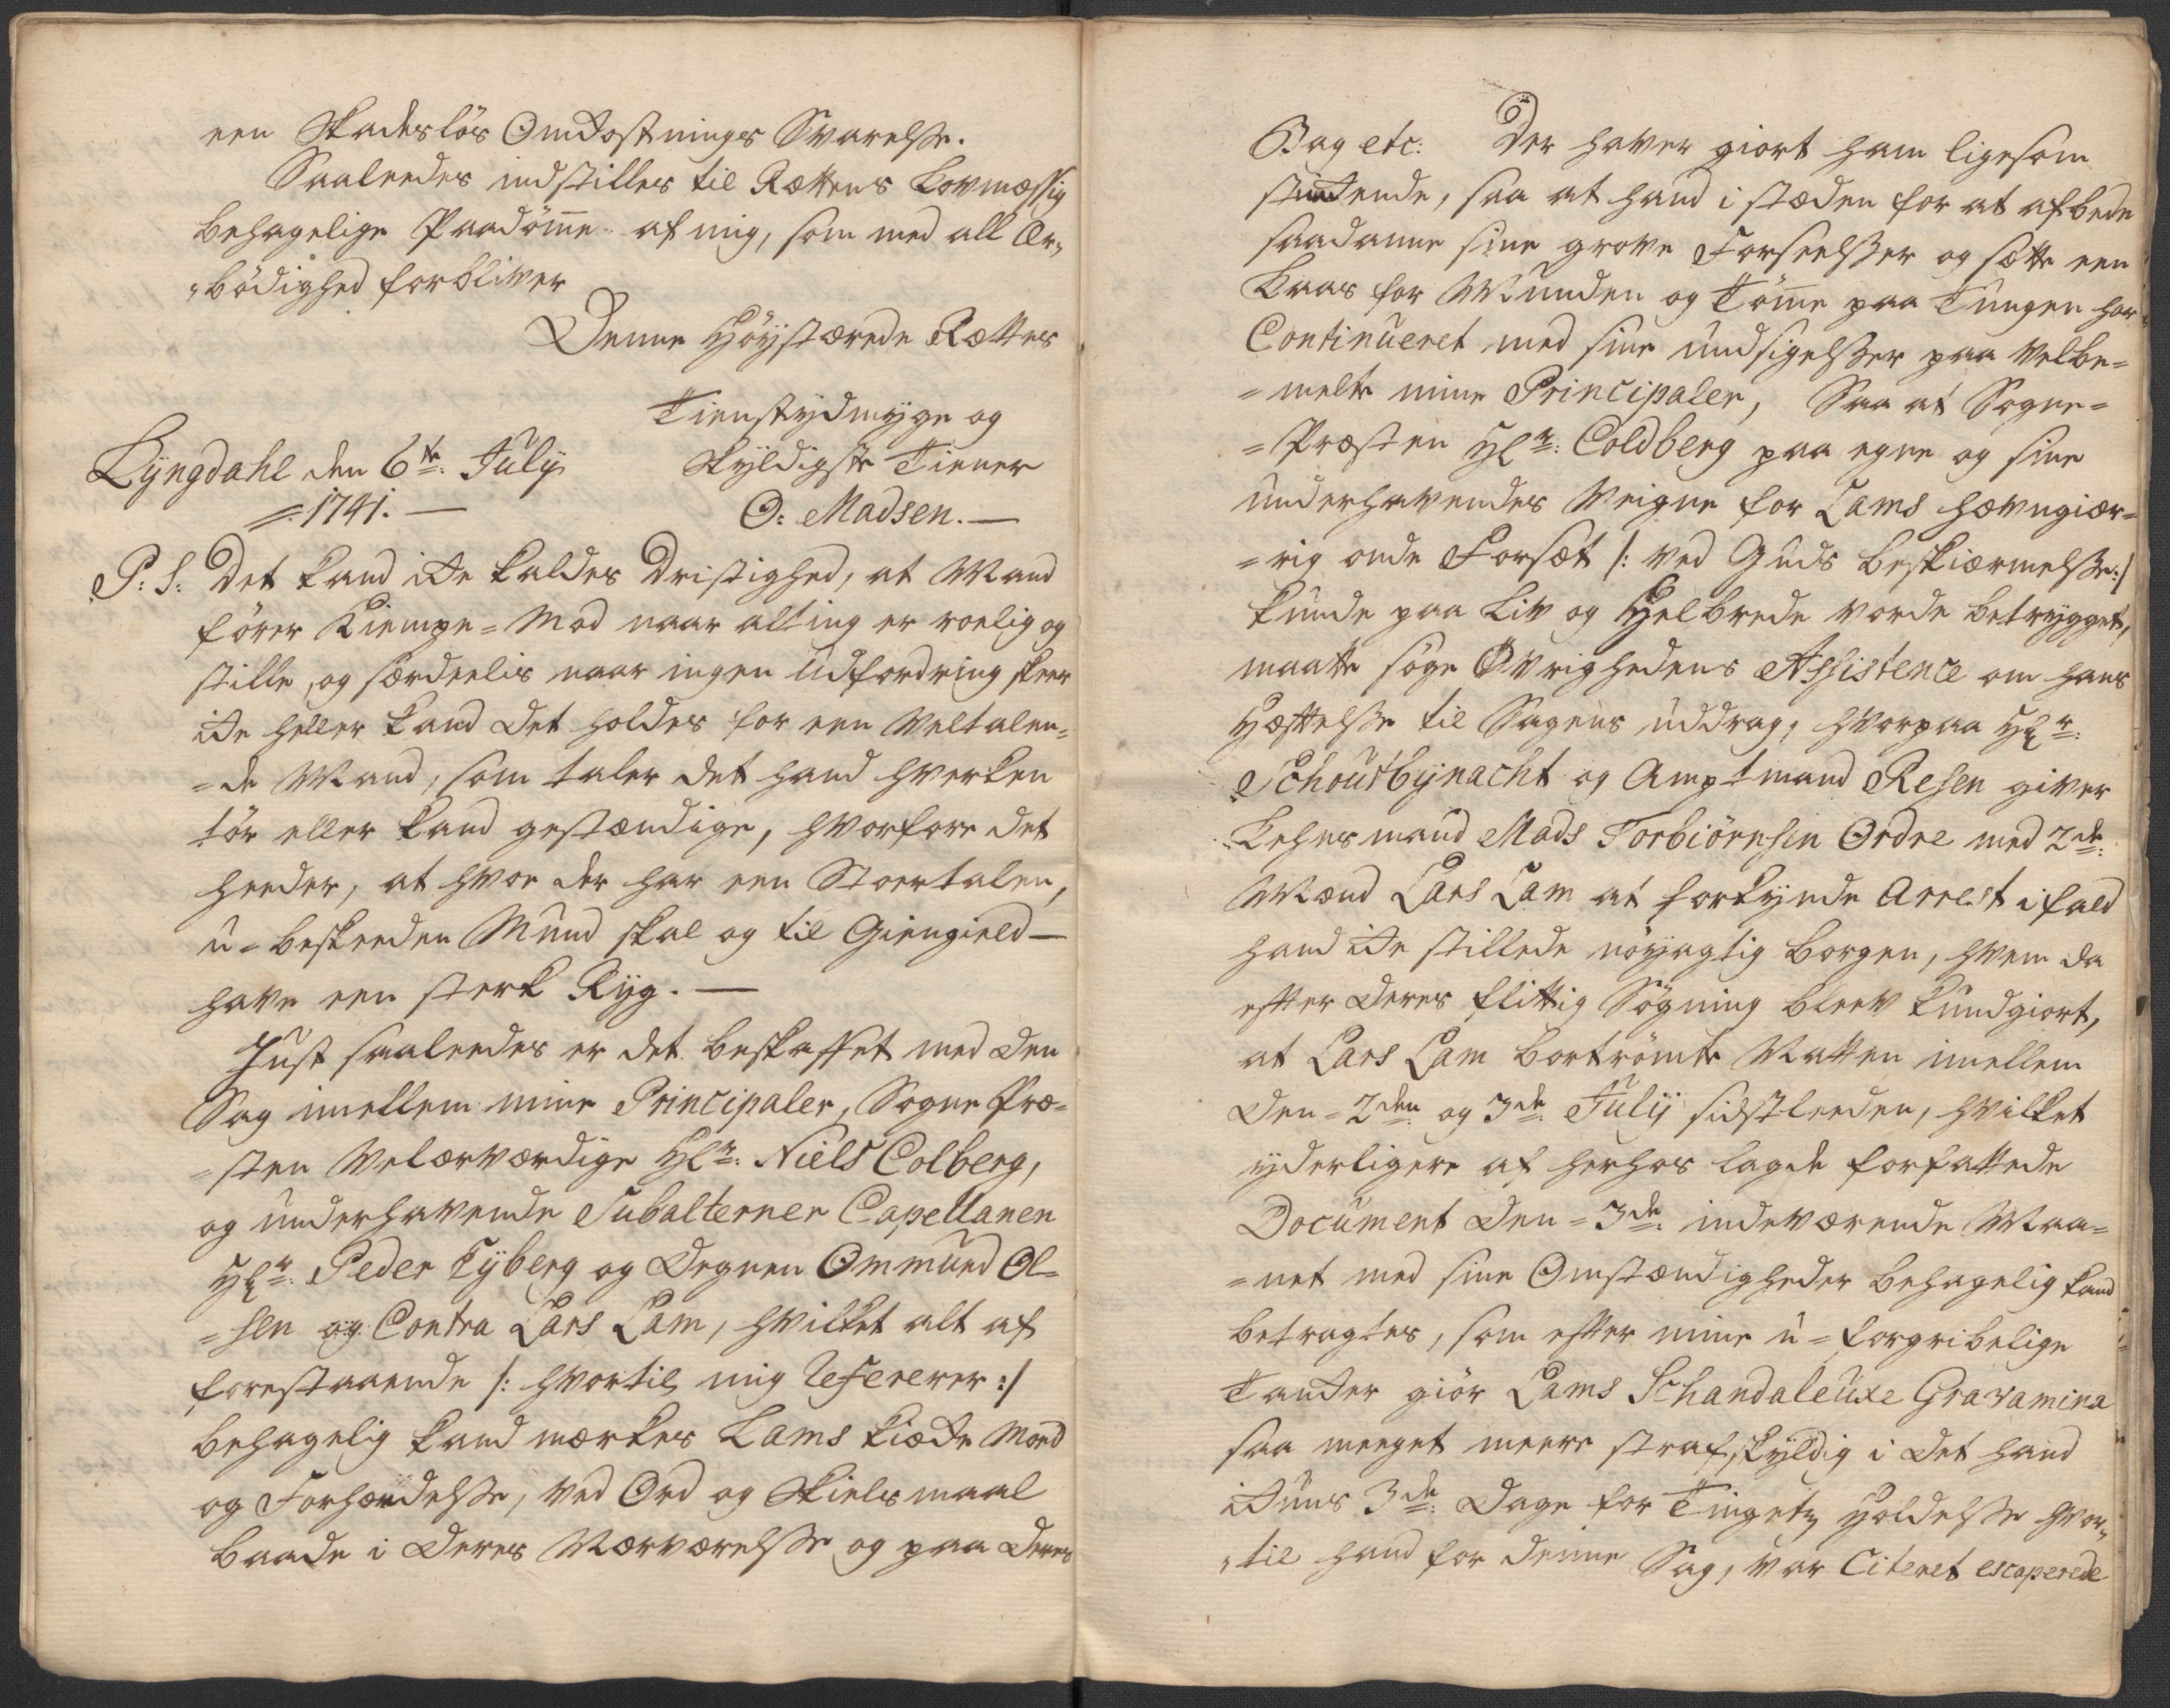 een Skadesløs Omkostnings Svarelsse.
Saaleedes indstilles til Rettens Lovmæssig
behagelige Paadömme af mig, som med all Ær„
„bödighed forbliver
Denne Höystærede Rættes
Tienstydmyge og
Lyngdahl den 6te: July
skyldigste Tiener
=1741.—
O: Madsen.—
P: S: Det kand icke kaldes Dristighed, at Mand
förer Kiempe=Mod naar alting er roelig og
stille, og særdeelis naar ingen Udfordring skeer
icke heller kand det holdes for een Veltalen=
=de Mand, som taler det hand hverken
tör eller kand gestændige, hvorfore det
heeder, at hvor der har een Stoertalen,
u=beskeeden Mund skal og til Giengield—
have een sterk Ryg.—
Just saaleedes er det beskaffet med den
Sag imellem mine Principaler, Sogne Præ=
=sten Velærværdige Hlr: Niels Colberg,
og underhavende Subalterner Capellanen
Hlr: Peder Tyberg og Degnen Ommund Ol=
=sen og Contra Lars Lam, hvilket alt af
forestaaende /: hvortil mig refererer :/
behagelig kand mærkes Lams kiæcke Mord
og Forhændelsse, ved Ord og Skielsmaal
baade i deres Nærværelsse og paa deres
Bag etc: Der haver giort ham ligesom
stinkende, saa at hand i stæden for at afbede
saadanne sine grove Forseelsser og sætte een
Laas for Munden og Tömme paa Tungen har
Continueret med sine undsigelsser paa Velbe=
=melte mine Principaler, Saa at Sogne=
=Præsten Hlr: Coldberg paa egne og sine
underhavendes Veigne for Lams hævngiær=
=rig onde Forsæt /: ved Guds beskiærmelsse :/
kunde paa Liv og Helbrede vorde betrygget,
maatte söge Øvrighedens Assistence om hans
Hæftelsse til Sagens uddrag, hvorpaa Hr:
Schoutbynacht og Amptmand Resen giver
Lehnsmand Mads Torbiörnsen Ordre med 2de:
Mænd Lars Lam at forkynde Arrest ifald
hand icke stillede nöyagtig borgen, hvem da
efter deres flittig Sögning bleev kundgiort,
at Lars Lam bortrömte Natten imellem
den=2den og 3de: July sidstleeden, hvilket
yderligere af herhos lagde forfattede
Document den=3de: indeværende Maa=
=net med sine Omstændigheder behagelig kand
betragtes, som efter mine u=forgribelige
Tancker giör Lams Schandaleuxe Gravamina
saa meeget meere strafskyldig i det hand
ickuns 3de: Dage for Tingetz Holdelsse hvor„
„til hand for denne Sag, var Citeret escaperede